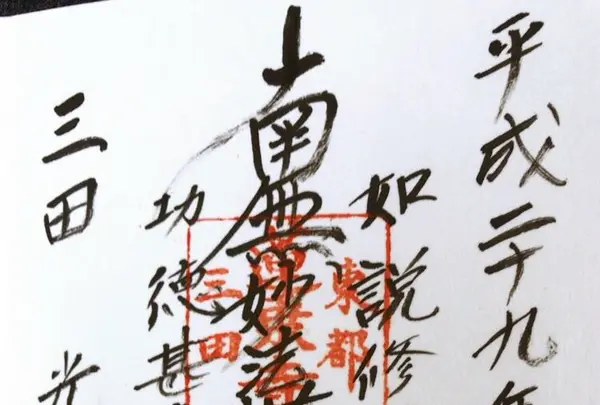 平成二十九年
如説修
南無妙法
功徳甚
三田 光
東都
三田